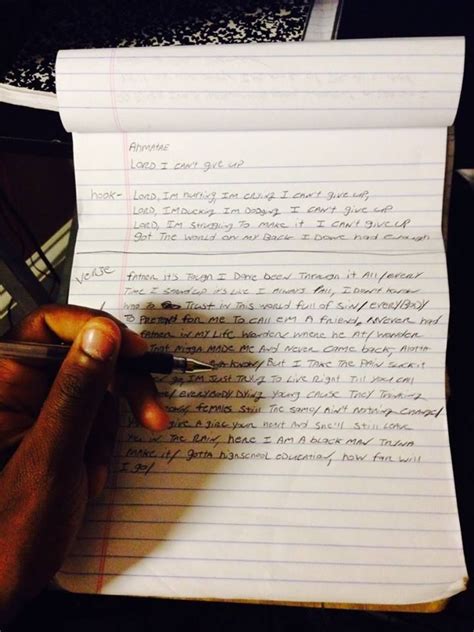 Ahmarae
Lord I can't give up
hook- Lord, Im hurting, Im crying I can't give up,
Lord, Im Ducking Im Dodging I can't give up
Lord, Im struggling To make it I can't give up
Got The World on my Back I Done had enough
Verse Father it's Tough I Done been Through it All/every
Time I stand up it's like I Always fall, I Don't know
who To Trust in This world full of sin/ everybody
To Pretend for me To call em A friend, never had
father in my life wonder where he At/ wonder
That nigga made me And never came back,
know/ But I Take The Pain suck it
Im just Trying To live Right Till you call
everybody Dying young cause They Thinking
females still The same/ Ain't nothing change/
give A girl your heart And she'll still leave
you in The Rain, here I Am A black man Tryna
make it/ gotta highschool education, how far will
I go/